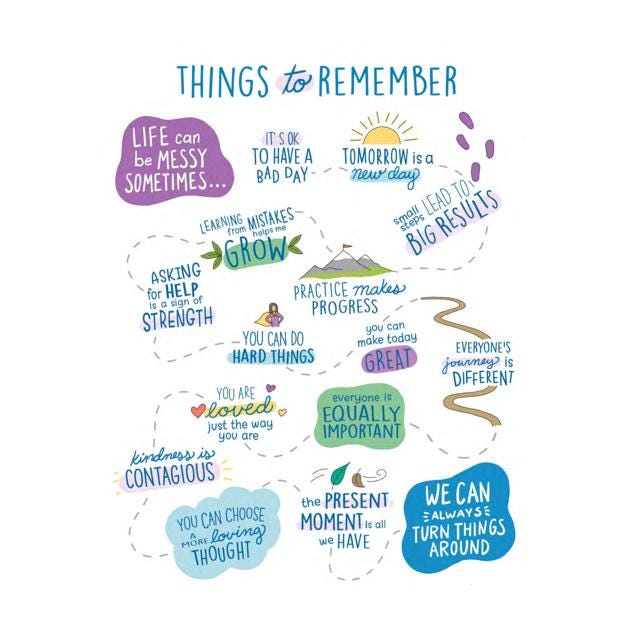 THINGS to REMEMBER
LIFE can
be MESSY
SOMETIMES...
IT'S OK
TO HAVE A
BAD DAY
TOMORROW is a
new day
small LEAD TO
steps BIG RESULTS
LEARNING from MISTAKES
helps me
GROW
ASKING
for HELP
is a sign of
STRENGTH
PRACTICE makes
PROGRESS
YOU CAN DO
HARD THINGS
you can
make today
GREAT
EVERYONE'S
journey is
DIFFERENT
YOU ARE
loved
just the way
you are
everyone is
EQUALLY
IMPORTANT
kindness is
CONTAGIOUS
YOU CAN CHOOSE
A MORE loving
THOUGHT
the PRESENT
MOMENT is all
we HAVE
WE CAN
ALWAYS
TURN THINGS
AROUND